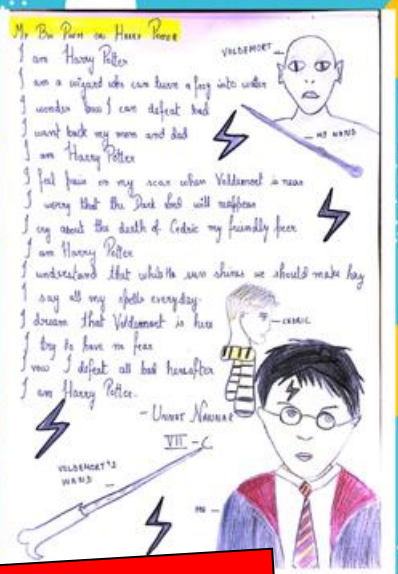 My Bio Poem on Harry Potter
I am Harry Potter
I am a wizard who can turn a frog into water
I wonder how I can defeat bad
I want back my mom and dad
I am Harry Potter
I feel pain on my scar when Voldemort is near
I worry that the Dark lord will reappear
I cry about the death of Cedric my friendly peer
I am Harry Potter
I understand that while the sun shines we should make hay
I say all my spells everyday.
I dream that Voldemort is here
I try to have no fear
I vow I defeat all bad hereafter
I am Harry Potter.
- Unnat Nannar
VII - C
VOLDEMORT
MY WAND
CEDRIC
VOLDEMORT'S
WAND
ME